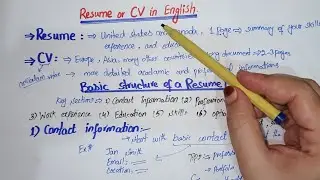 Resume or CV in English.
→ Resume :→ United states and canada, 1 Page → summary of your skills
experience, and educ
→ CV: → Europe, Asia, many other countries → long document → 2-3 pages
→ more detailed academic and professional informations
Basic structure of a Resume
Key section: 1) Contact information 2) Profession
3) Work experience 4) Education 5) skills 6) optio
1) Contact information:→
→ start with basic contact
Ex:-
Jan smith
Email:
Location: